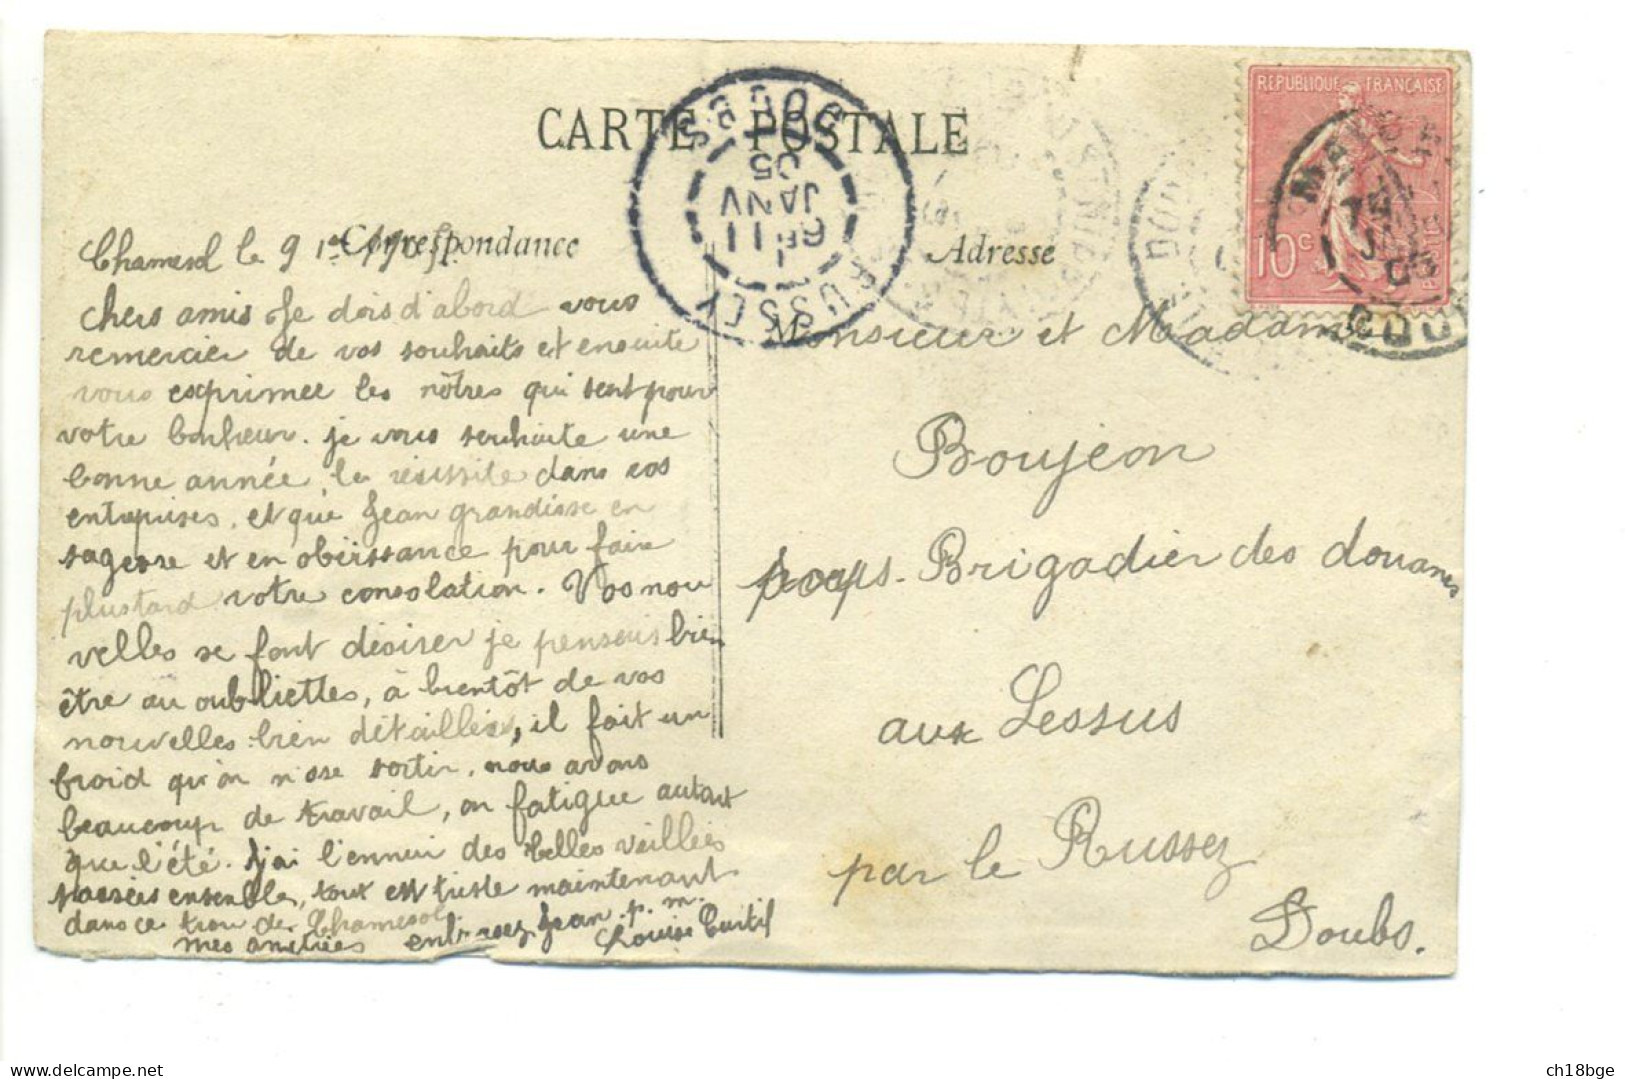 CARTE POSTALE
Correspondance
Adresse
REPUBLIQUE FRANÇAISE
10c
RUSSEY
DOUBS
11
JANV
05
Chamesol le 9 1er 1905.
chers amis Je dois d'abord vous
remercier de vos souhaits et ensuite
vous exprimer les nôtres qui sont pour
votre bonheur. je vous souhaite une
bonne année, la réussite dans vos
entreprises, et que Jean grandisse en
sagesse et en obëissance pour faire
plustard votre consolation. Vos nou
velles se font désirer je pensais bien
être au oubliettes, à bientôt de vos
nouvelles bien détaillées, il fait un
froid qu'on n'ose sortir, nous avons
beaucoup de travail, on fatigue autant
que l'été. j'ai l'ennui des belles veillées
passées ensemble, tout est triste maintenant
dans ce trou de Chamesol
mes amitiés embrassez Jean p. m.
Louise Curtil
Monsieur et Madame
Boujeon
Brigadier des douanes
aux Lessus
par le Russey
Doubs.
ch18bge